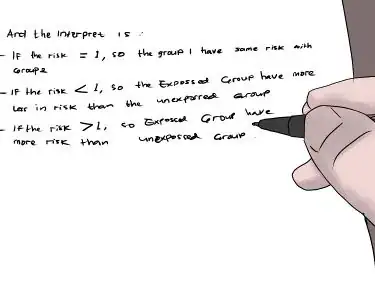 And the Interpret is :
- If the risk = 1, so the group 1 have same risk with
Group 2
- If the risk < 1, so the Exposed Group have more
risk than the unexposed Group
- If the risk > 1, so Exposed Group have
more risk than unexposed Group.